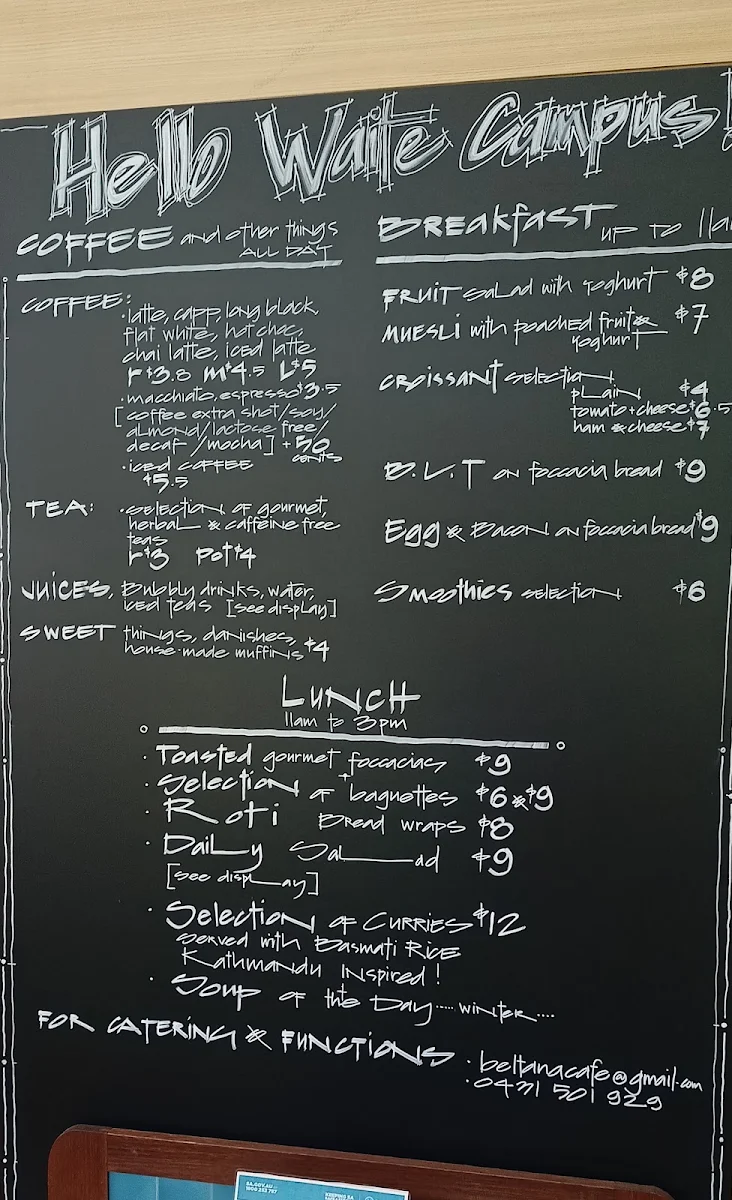 Hello Waite Campus!
COFFEE and other things
ALL DAY
COFFEE:
·latte, capp, long black,
flat white, hot choc,
chai latte, iced latte
r $3.8 M $4.5 L $5
·macchiato, espresso $3.5
[coffee extra shot/soy/
almond/lactose free/
decaf/mocha] + 50
cents
·iced coffee
$5.5
TEA: ·selection of gourmet,
herbal & caffeine free
teas
r $3 Pot $4
JUICES, Bubbly drinks, water,
iced teas [see display]
SWEET things, danishes,
house-made muffins $4
BREAKfAST up to 11a
FRUIT salad with yoghurt $8
MUESLI with poached fruit & $7
yoghurt
CROISSANT selection
PLAIN $4
tomato+cheese $6.5
ham & cheese $7
B.L.T on foccacia bread $9
Egg & Bacon on foccacia bread $9
Smoothies selection $6
LUNCH
11am to 3pm
· Toasted gourmet foccacias $9
· Selection of baguettes $6 & $9
· Roti Bread wraps $8
· Daily Salad $9
[see display]
· Selection of Curries $12
served with Basmati Rice
Kathmandu Inspired!
· Soup of the Day.....winter....
FOR CATERING & FUNCTIONS · beltanacafe@gmail.com
·0431 501 929
SA.GOV.AU
1800 253 787
KEEPING SA